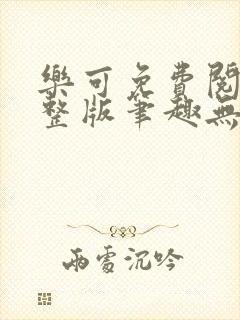 樂可免費閱
整版筆趣無
雨霑沉吟